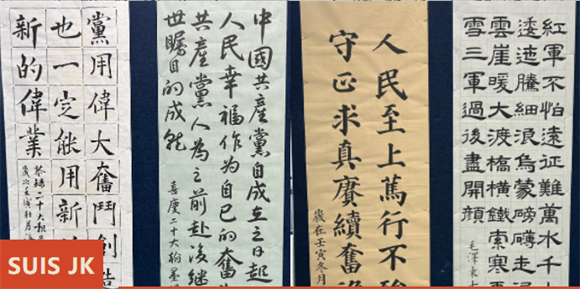 黨用偉大奮鬥創造
也一定能用新
新的偉業
中國共產黨自成立之日起
人民幸福作為自己的奮
共產黨人為之前赴後繼
世矚目的成就
喜慶二十大翰墨
人民至上篤行不
守正求真賡續奮
歲在壬寅冬月
紅軍不怕遠征難萬水千
逶迤騰細浪烏蒙磅礴走
雲崖暖大渡橋橫鐵索寒
雪三軍過後盡開顏
毛澤東七
SUIS JK